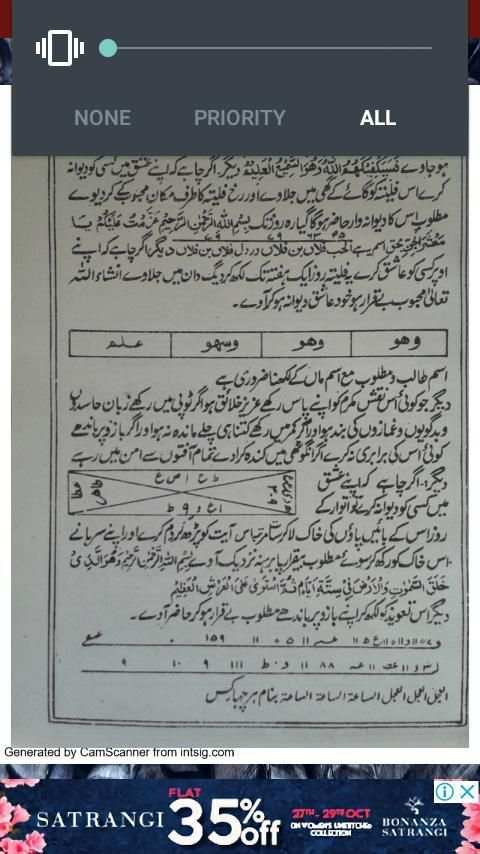 NONE PRIORITY ALL
ہو جاوے فَسَيَكْفِيكَهُمُ اللّٰهُ وَهُوَ السَّمِيعُ الْعَلِيمُ دیگر۔ اگر چاہے کہ اپنے عشق میں کسی کو دیوانہ
کرے اس فلیتہ کو گائے کے گھی میں جلاوے اور رخ فلیتہ کا طرف مکان محبوب کے کردیوے
مطلوب اس کا دیوانہ وار حاضر ہوگا گیارہ روز تک بِسْمِ اللهِ الرَّحْمٰنِ الرَّحِيْمِ عَزَمْتُ عَلَيْكُمْ يَا
اسم یہ ہے الحب فلاں بن فلاں در دل فلاں بن فلاں دیگر۔ اگر چاہے کہ اپنے
اوپر کسی کو عاشق کرے یہ فلیتہ روز ایک ہفتہ تک لکھ کر دیگ دان میں جلاوے انشاء اللہ
تعالیٰ محبوب بے قرار ہو خود عاشق دیوانہ ہو کر آوے۔
وهو وهو وسهو علم
اسم طالب و مطلوب مع اسم ماں کے لکھنا ضروری ہے
دیگر۔ جو کوئی اس نقش مکرم کو اپنے پاس رکھے عزیز خلائق ہو اگر ٹوپی میں رکھے زبان حاسدوں
و بدگویوں و غمازوں کی بند ہو اور اگر کمر میں رکھے کتنا ہی چلے ماندہ نہ ہو اور اگر بازو پر باندھے
کوئی اس کی برابری نہ کرے اگر انگوٹھی میں کندہ کرا دے تمام آفتوں سے امن میں رہے
دیگر۔ اگر چاہے کہ اپنے عشق
میں کسی کو دیوانہ کرے تو اتوار کے
روز اس کے بائیں پاؤں کی خاک لا کر سات بار اس آیت کو پڑھ کر دم کرے اور اپنے سرہانے
اس خاک کو رکھ کر سوئے مطلوب بیقرار پا برہنہ نزدیک آوے بِسْمِ اللهِ الرَّحْمٰنِ الرَّحِيْمِ وَهُوَ الَّذِيْ
خَلَقَ السَّمٰوٰتِ وَالْاَرْضَ فِيْ سِتَّةِ اَيَّامٍ ثُمَّ اسْتَوٰى عَلَى الْعَرْشِ الْعَظِيْمُ
دیگر اس تعویذ کو لکھ کر اپنے بازو پر باندھے مطلوب بے قرار ہو کر حاضر آوے۔
العجل العجل العجل الساعة الساعة الساعة بنام ہر چہار کس
Generated by CamScanner from intsig.com
SATRANGI FLAT 35% off 27TH - 29TH OCT ON WOMEN'S UNSTITCHED COLLECTION BONANZA SATRANGI